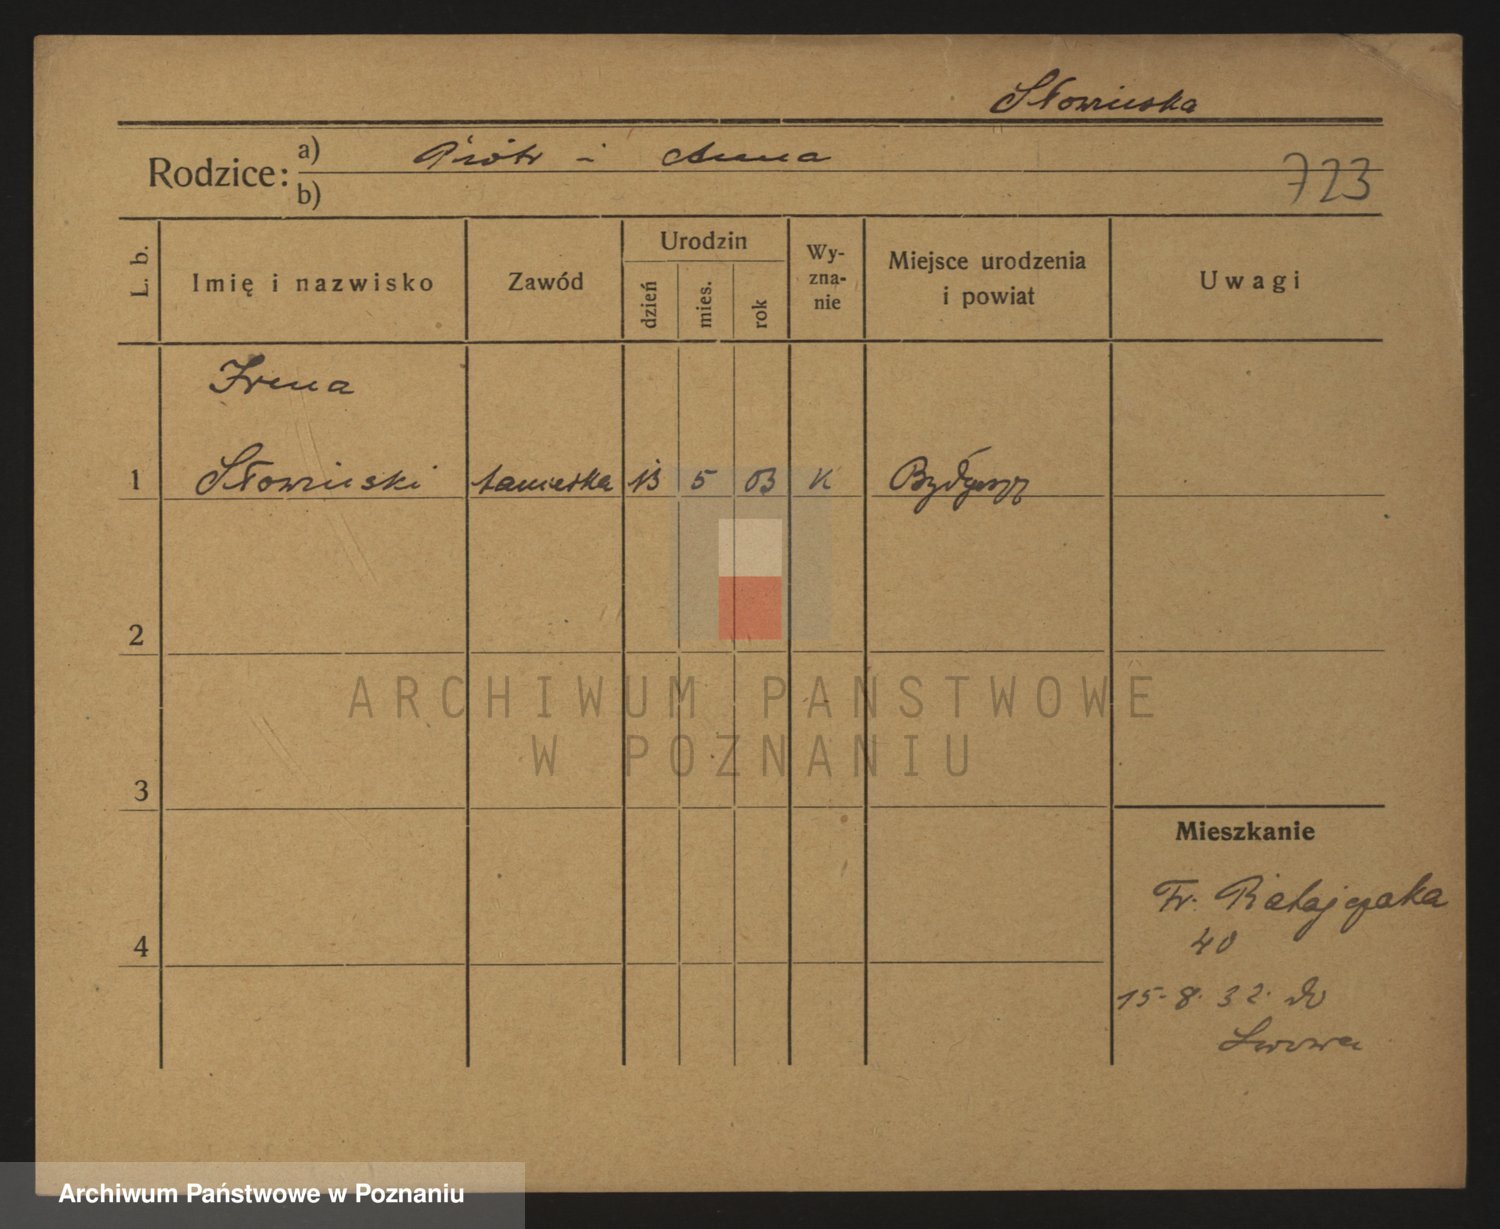 Słowieska
Rodzice:
a) Piotr i Anna
b)
723
L. b.
Imię i nazwisko
Zawód
Urodzin
dzień
mies.
rok
Wy-
zna-
nie
Miejsce urodzenia
i powiat
Uwagi
Irena
1 Słowieski tancerka 13 5 03 K Bydgoszcz
2
3
4
Mieszkanie
Fr. Ratajczaka
40
15. 8. 32. do
Lwowa
ARCHIWUM PAŃSTWOWE
W POZNANIU
Archiwum Państwowe w Poznaniu